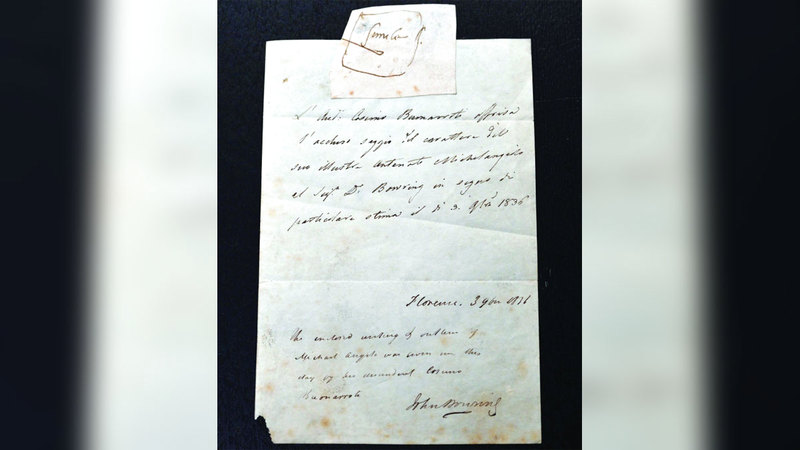 L'Aud. Cosimo Buonarroti offrira
l'accluso saggio del carattere del
suo illustre antenato Michelangelo
al Sigr. Dr. Bowring in segno di
particolare stima il di 3. 9bre 1836
Florence. 3 9bre 1836
The enclosed writing & outline of
Michael Angelo was given me this
day by his descendant Cosimo
Buonarroti
John Bowring